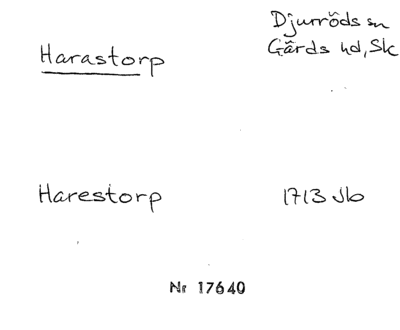 Djurröds sn
Harastorp
Gärds hd, Sk
Harestorp
1713 Jb
Nr 17640